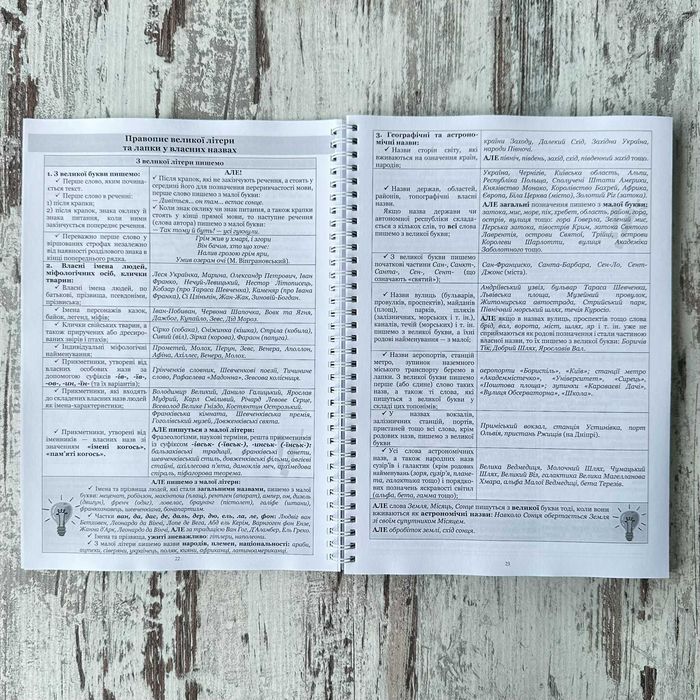 Правопис великої літери
та лапки у власних назвах
З великої літери пишемо
1. З великої букви пишемо:
✓ Перше слово, яким почина-
ється текст.
✓ Перше слово в реченні:
1) після крапки;
2) після крапок, знака оклику й
знака питання, коли ними
закінчується попереднє речення.
АЛЕ!
✓ Після крапок, які не закінчують речення, а стоять у
середині його для позначення переривчастості мови,
перше слово пишемо з малої букви:
– Дивіться... он там... встає сонце.
✓ Коли знак оклику чи знак питання, а також крапки
стоять у кінці прямої мови, то наступне речення
(слова автора) пишемо з малої букви:
– Так тому й бути! — усі гукнули.
✓ Переважно перше слово у
віршованих строфах незалежно
від наявності розділового знака в
кінці попереднього рядка.
Грім жив у хмарі, і згори
Він бачив, хто що хоче:
Налив грозою грім яри,
Умив озерам очі (М. Вінграновський).
2. Власні імена людей,
міфологічних осіб, клички
тварин:
✓ Власні імена людей, по
батькові, прізвища, псевдоніми,
прізвиська;
Леся Українка, Марина, Олександр Петрович, Іван
Франко, Нечуй-Левицький, Нестор Літописець,
Кобзар (про Тараса Шевченка), Каменяр (про Івана
Франка), Сі Цзіньпін, Жан-Жак, Зиновій-Богдан.
✓ Імена персонажів казок,
байок, легенд, міфів;
Іван-Побиван, Червона Шапочка, Вовк та Ягня,
Дажбог, Купайло, Зевс, Дід Мороз.
✓ Клички свійських тварин, а
також приручених або дресиро-
ваних звірів і птахів;
Сірко (собака), Сніжинка (кішка), Стріла (кобила),
Сивий (віл), Зірка (корова), Фараон (папуга).
✓ Індивідуальні міфологічні
найменування;
Прометей, Молох, Перун, Зевс, Венера, Аполлон,
Афіна, Ахіллес, Венера, Молох.
✓ Прикметники, утворені від
власних особових назв за
допомогою суфіксів -ів-, -їв-,
-ов-, -ин, -їн- (та їх варіантів);
Грінченків словник, Шевченкові поезії, Тичинине
слово, Рафаелева «Мадонна», Зевсова колісниця.
✓ Прикметники, які входять
до складених власних назв людей
як імена-характеристики;
Володимир Великий, Данило Галицький, Ярослав
Мудрий, Карл Сміливий, Річард Левове Серце,
Всеволод Велике Гніздо, Костянтин Острозький.
✓ Прикметники, утворені від
іменників — власних назв зі
значенням «імені когось»,
«пам'яті когось».
Франківська кімната, Шевченківська премія,
Гоголівський музей, Довженківські свята.
АЛЕ пишуться з малої літери:
Фразеологізми, наукові терміни, решта прикметників
з суфіксом -івськ- (-ївськ-), -инськ- (-їнськ-):
бальзаківські традиції, франківські сонети,
шевченківський стиль, довженківські фільми, авгієві
стайні, ахіллесова п'ята, дамоклів меч, архімедова
спіраль, піфагорова теорема.
АЛЕ пишемо з малої літери:
✓ Імена та прізвища людей, які стали загальними назвами, пишемо з малої
букви: меценат, робінзон, макінтош (плащ), рентген (апарат), ампер, ом, дизель
(двигун), френч (одяг), ловелас, браунінг (пістолет), галіфе (штани),
франкознавець, шевченкіана, бонапартизм.
✓ Частки ван, да, дас, де, даль, дер, ді, ель, ла, ле, фон: Людвіг ван
Бетховен, Леонардо да Вінчі, Лопе де Вега, Абд ель Керім, Варнгаген фон Ензе,
Жанна д'Арк, Леонардо да Вінчі. АЛЕ за традицією Ван Гог, Д'Аламбер, Ель Греко.
✓ Імена та прізвища, ужиті зневажливо: гітлери, наполеони.
✓ З малої літери пишемо назви народів, племен, національності: араби,
ацтеки, сіверяни, українець, поляк, кияни, африканці, латиноамериканці.
22
3. Географічні та астроно-
мічні назви:
✓ Назви сторін світу, які
вживаються на означення країн,
народів;
країни Заходу, Далекий Схід, Західна Україна,
народи Півночі.
АЛЕ північ, південь, захід, схід, південний захід тощо.
✓ Назви держав, областей,
районів, топографічні власні
назви.
Якщо назва держави чи
автономної республіки склада-
ється з кількох слів, то всі слова
пишемо з великої букви;
Україна, Чернігів, Київська область, Альпи,
Республіка Польща, Сполучені Штати Америки,
Князівство Монако, Королівство Бахрейн, Африка,
Європа, Біла Церква (місто), Золотий Ріг (затока).
АЛЕ загальні позначення пишемо з малої букви:
затока, мис, море, пік, хребет, область, район, гора,
острів, вулиця тощо: гора Говерла, Зелений мис,
Перська затока, півострів Крим, затока Святого
Лаврентія, острови Святої Трійці, острови
Королеви Шарлотти, вулиця Академіка
Заболотного тощо.
✓ З великої букви пишемо
початкові частини Сан-, Санкт-,
Санта-, Сен-, Сент- (що
означають «святий»);
Сан-Франциско, Санта-Барбара, Сен-Ло, Сент-
Джонс (міста).
✓ Назви вулиць (бульварів,
провулків, проспектів), майданів
(площ), парків, шляхів
(залізничних, морських і т. ін.),
каналів, течій (морських) і т. ін.
пишемо з великої букви, а їхні
родові найменування — з малої;
Андріївський узвіз, бульвар Тараса Шевченка,
Львівська площа, Музейний провулок,
Житомирська автострада, Стрийський парк,
Північний морський шлях, течія Куросіо.
АЛЕ якщо в назвах вулиць, проспектів тощо слова
брід, вал, ворота, міст, шлях, яр і т. ін. уже не
сприймаються як родові позначення і стали частиною
власної назви, то їх пишемо з великої букви: Боричів
Тік, Добрий Шлях, Ярославів Вал.
✓ Назви аеропортів, станцій
метро, зупинок наземного
міського транспорту беремо в
лапки. З великої букви пишемо
перше (або єдине) слово таких
назв, а також ті слова, які
пишуться з великої букви у
складі цих топонімів;
аеропорти «Бориспіль», «Київ»; станції метро
«Академмістечко», «Університет», «Сирець»,
«Поштова площа»; зупинки «Караваєві Дачі»
«Вулиця Обсерваторна», «Школа».
✓ У назвах вокзалів,
залізничних станцій, портів,
пристаней тощо усі слова, крім
родових назв, пишемо з великої
букви;
Приміський вокзал, станція Устинівка, порт
Ольвія, пристань Ржищів (на Дніпрі).
✓ Усі слова астрономічних
назв, а також народних назв
сузір'їв і галактик (крім родових
найменувань (зоря, сузір'я, плане-
та, галактика тощо) та порядко-
вих позначень яскравості світил
(альфа, бета, гамма тощо);
Велика Ведмедиця, Молочний Шлях, Чумацький
Шлях, Великий Віл, галактика Велика Магелланова
Хмара, альфа Малої Ведмедиці, бета Терезів.
АЛЕ слова Земля, Місяць, Сонце пишуться з великої букви тоді, коли вони
вживаються як астрономічні назви: Навколо Сонця обертається Земля
зі своїм супутником Місяцем.
АЛЕ обробіток землі, схід сонця.
23